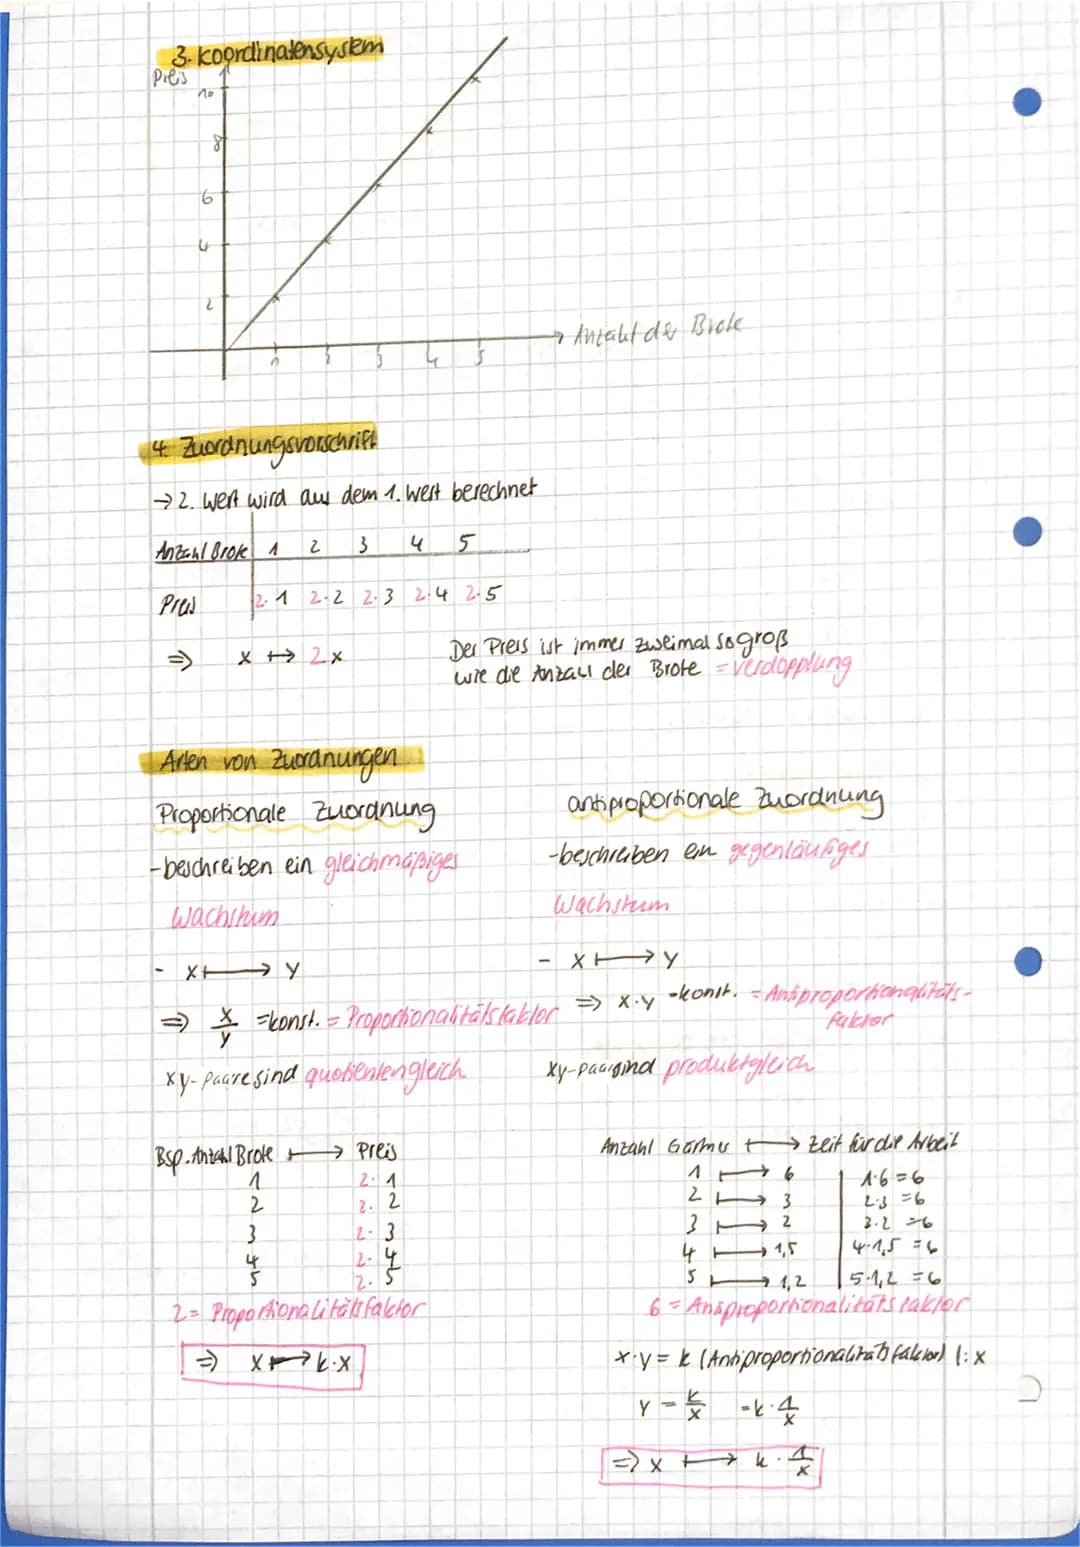 3. Koordinatensystem
Preis
10
8
6
4
2
1 2 3 4 5
Anzahl der Brote
4. Zuordnungsvorschrift
→ 2. Wert wird aus dem 1. Wert berechnet
Anzahl Brote 1 2 3 4 5
Preis 2·1 2·2 2·3 2·4 2·5
⇒ x ↦ 2x
Der Preis ist immer zweimal so groß
wie die Anzahl der Brote = Verdopplung
Arten von Zuordnungen
Proportionale Zuordnung
-beschreiben ein gleichmäßiges
Wachstum
- x ⟼ y
⇒ x/y =konst. = Proportionalitätsfaktor
xy-Paare sind quotientengleich
Bsp. Anzahl Brote ⟼ Preis
1 2·1
2 2·2
3 2·3
4 2·4
5 2·5
2 = Proportionalitätsfaktor
⇒ x ⟼ k·x
antiproportionale Zuordnung
-beschreiben ein gegenläufiges
Wachstum
- x ⟼ y
⇒ x·y =konst. = Antiproportionalitäts-
faktor
xy-paar sind produktgleich
Anzahl Gärtner ⟼ Zeit für die Arbeit
1 ⟼ 6 1·6=6
2 ⟼ 3 2·3 =6
3 ⟼ 2 3·2 =6
4 ⟼ 1,5 4·1,5 =6
5 ⟼ 1,2 5·1,2 =6
6 = Antiproportionalitätsfaktor
x·y = k (Antiproportionalitätsfaktor) |: x
y = k/x = k · 1/x
⇒ x ⟼ k · 1/x